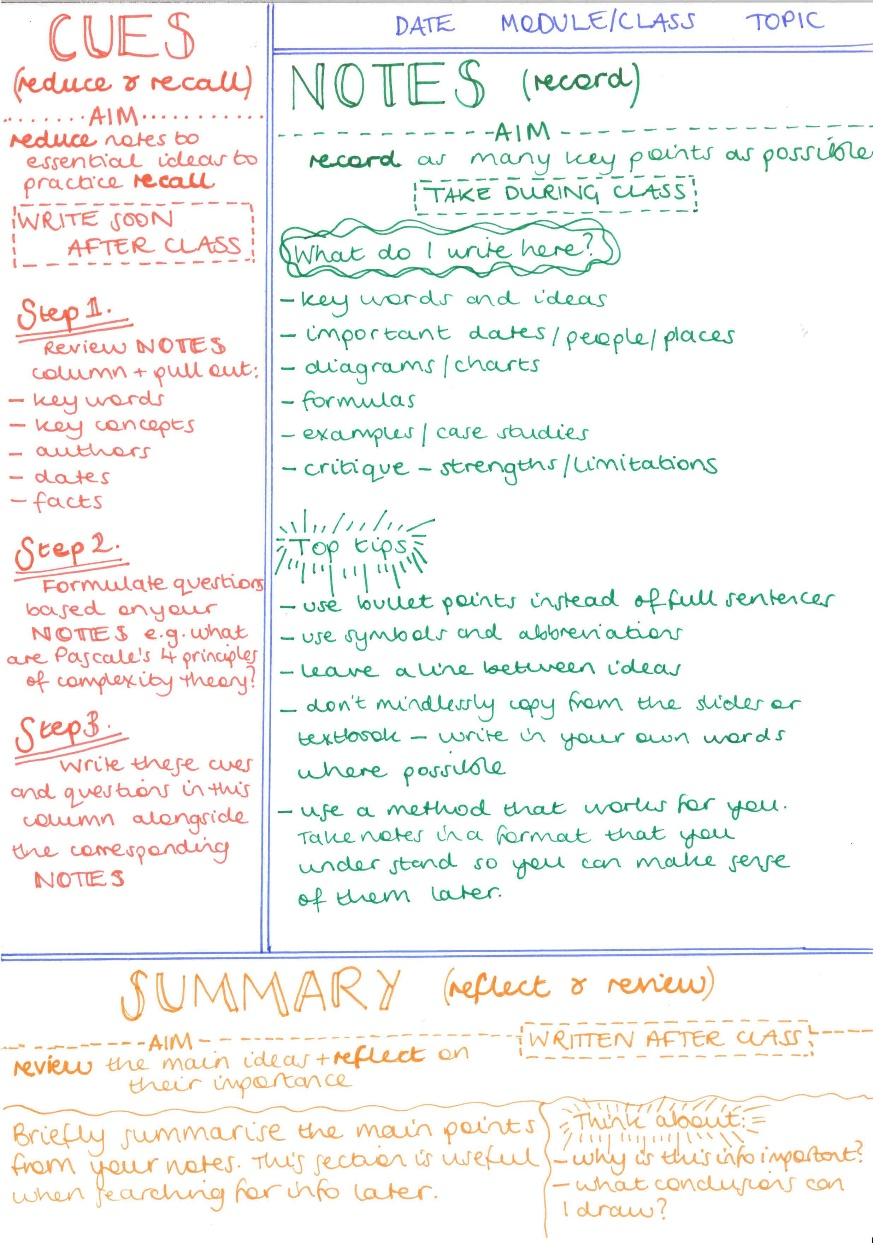 DATE MODULE/CLASS TOPIC
CUES
(reduce & recall)
AIM
reduce notes to
essential ideas to
practice recall
WRITE SOON
AFTER CLASS
Step 1.
Review NOTES
column + pull out:
- key words
- key concepts
- authors
- dates
- facts
Step 2.
Formulate questions
based on your
NOTES e.g. what
are Pascale's 4 principles
of complexity theory?
Step 3.
Write these cues
and questions in this
column alongside
the corresponding
NOTES
NOTES (record)
AIM
record as many key points as possible
TAKE DURING CLASS
What do I write here?
- key words and ideas
- important dates/people/places
- diagrams/charts
- formulas
- examples/case studies
- critique - strengths/limitations
Top tips
- use bullet points instead of full sentences
- use symbols and abbreviations
- leave a line between ideas
- don't mindlessly copy from the slides or
textbook - write in your own words
where possible
- use a method that works for you.
Take notes in a format that you
understand so you can make sense
of them later.
SUMMARY (reflect & review)
AIM
WRITTEN AFTER CLASS
review the main ideas + reflect on
their importance
Briefly summarise the main points
from your notes. This section is useful
when searching for info later.
Think about:
- why is this info important?
- what conclusions can
I draw?